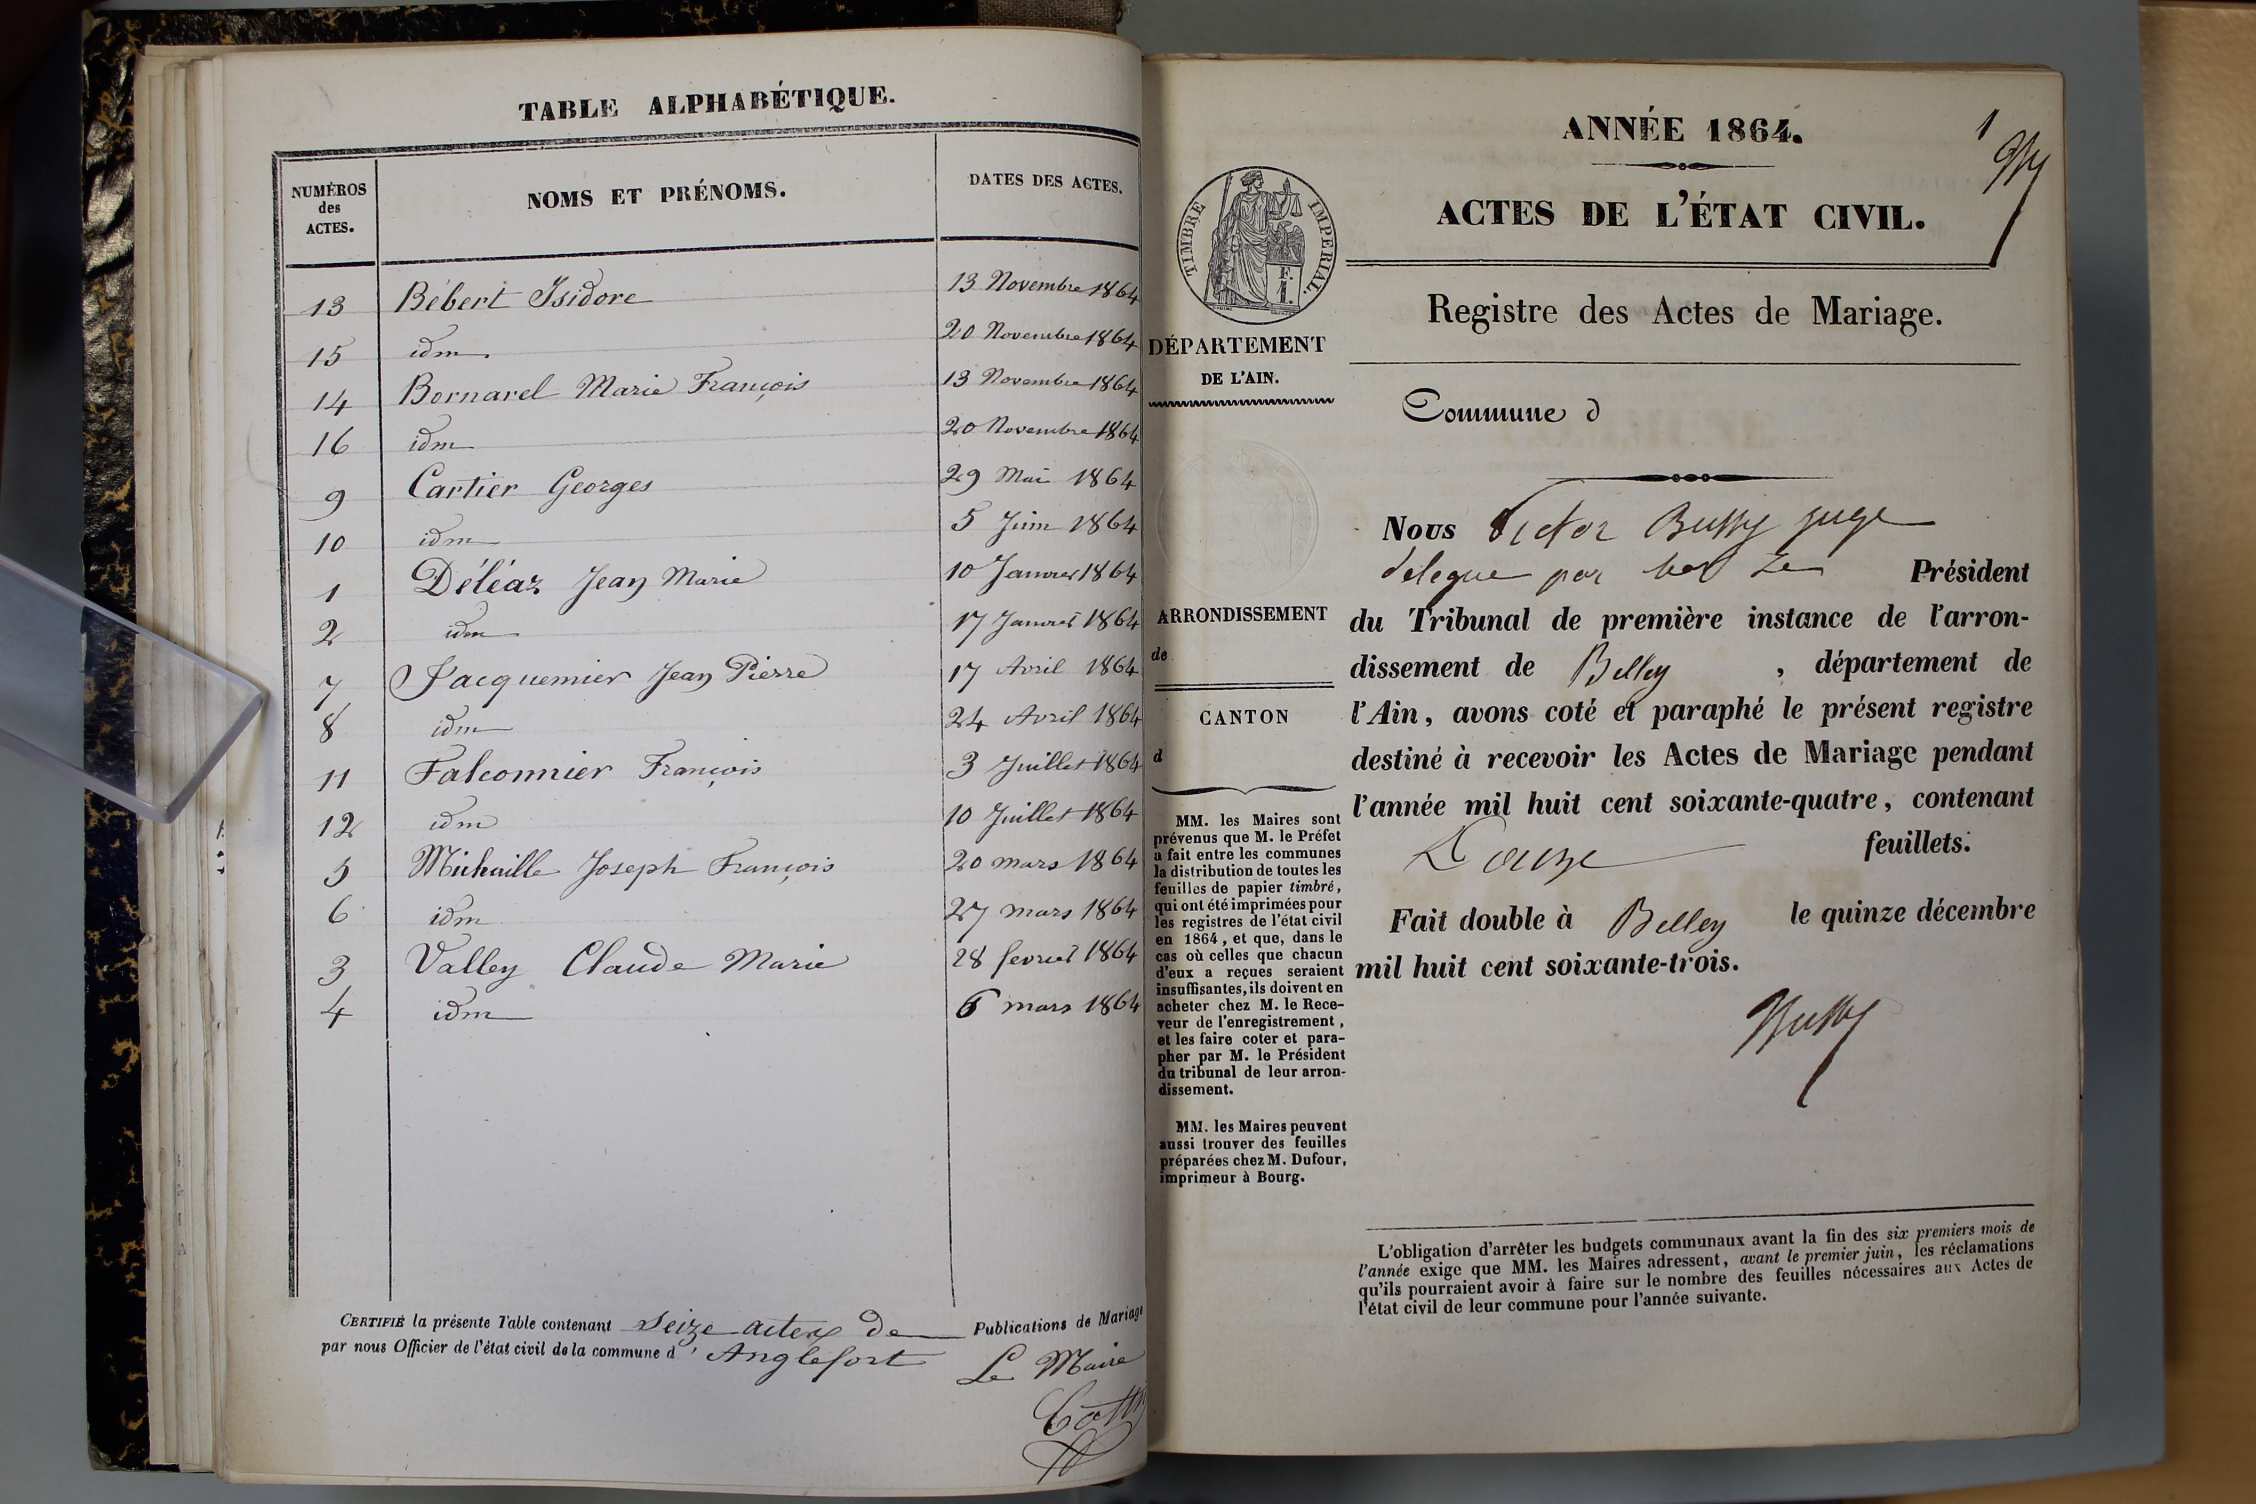 TABLE ALPHABÉTIQUE.
NUMÉROS des ACTES.
NOMS ET PRÉNOMS.
DATES DES ACTES.
13 Bébert Isidore 13 Novembre 1864
15 idm 20 Novembre 1864
14 Bornarel Marie François 13 Novembre 1864
16 idm 20 Novembre 1864
9 Cartier Georges 29 Mai 1864
10 idm 5 Juin 1864
1 Déléaz Jean Marie 10 Janvier 1864
2 idm 17 Janvier 1864
7 Jacquemier Jean Pierre 17 Avril 1864
8 idm 24 Avril 1864
11 Falconnier François 3 Juillet 1864
12 idm 10 Juillet 1864
5 Michaille Joseph François 20 mars 1864
6 idm 27 mars 1864
3 Valley Claude Marie 28 fevrier 1864
4 idm 6 mars 1864
CERTIFIÉ la présente Table contenant seize actes de Publications de Mariage
par nous Officier de l'état civil de la commune d' Anglefort
Le Maire
1
ANNÉE 1864.
ACTES DE L'ÉTAT CIVIL.
TIMBRE IMPÉRIAL.
Registre des Actes de Mariage.
DÉPARTEMENT
DE L'AIN.
Commune d
ARRONDISSEMENT
de
CANTON
d
MM. les Maires sont
prévenus que M. le Préfet
a fait entre les communes
la distribution de toutes les
feuilles de papier timbré,
qui ont été imprimées pour
les registres de l'état civil
en 1864, et que, dans le
cas où celles que chacun
d'eux a reçues seraient
insuffisantes, ils doivent en
acheter chez M. le Rece-
veur de l'enregistrement,
et les faire coter et para-
pher par M. le Président
du tribunal de leur arron-
dissement.
MM. les Maires peuvent
aussi trouver des feuilles
préparées chez M. Dufour,
imprimeur à Bourg.
Nous Victor Bussy juge
délégué par Président
du Tribunal de première instance de l'arron-
dissement de Belley, département de
l'Ain, avons coté et paraphé le présent registre
destiné à recevoir les Actes de Mariage pendant
l'année mil huit cent soixante-quatre, contenant
Douze feuillets.
Fait double à Belley le quinze décembre
mil huit cent soixante-trois.
Bussy
L'obligation d'arrêter les budgets communaux avant la fin des six premiers mois de
l'année exige que MM. les Maires adressent, avant le premier juin, les réclamations
qu'ils pourraient avoir à faire sur le nombre des feuilles nécessaires aux Actes de
l'état civil de leur commune pour l'année suivante.